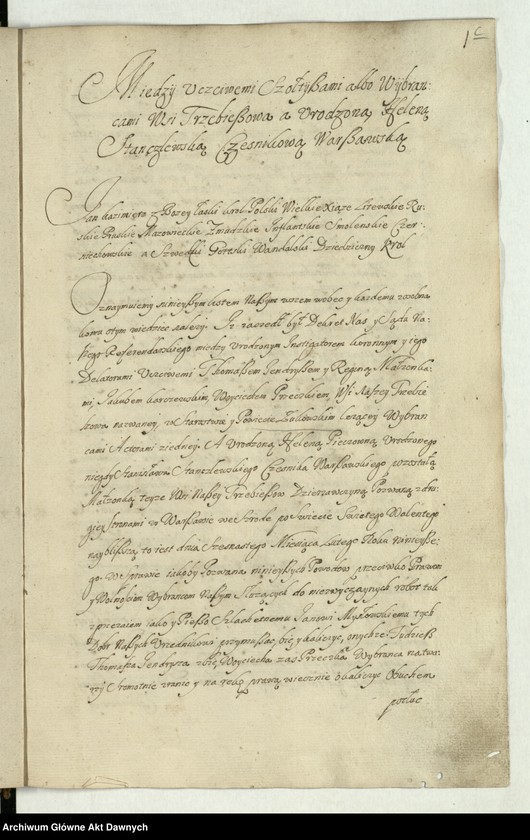 1c
Między Uczciwemi Szołtyßami albo Wybran-
cami Wsi Trzebießowa a Urodzoną Heleną
Stanczlewską Czesnikową Warßawską
Jan Kazimierz z Bozey Łaski Krol Polski Wielkie Xiąze Litewskie Ru-
skie Pruskie Mazowieckie Zmudzkie Inflantskie Smolenskie Czer-
niechowskie a Szwedzki Gottski Wandalski Dziedziczny Krol
Oznaymuiemy ninieyßym listem Naßym wszem wobec y kazdemu zosobna
komu otym wiedziec nalezy. Iz zaszedł był Dekret Nas y Sądu Na-
ßego Referendarskiego między Urodzonym Instigatorem koronnym y iego
Delatorami Uczciwemi Thomaßem Jendryßem y Reginą Małzonka-
mi, Jakubem Woyciechem Przeczkiem, Wsi Naßey Trzebie
ßowa nazwaney, w Starostwie y Powiecie lezącey Wybran-
cami Actorami ziedney. A Urodzoną Heleną Urodzonego
niegdy Stanisława Stanczlewskiego Czesnika Warßawskiego pozostałą
Małzonką teyze Wsi Naßey Trzebießow Dzierzawczyną Pozwaną z dru-
giey stronami w Warßawie we Srode po Swięcie Swiętego Walentego
naybliższą to iest dnia Szesnastego Miesiąca Lutego Roku
go. W Sprawie iakoby Pozwana ninieyßych Powodow przeciwko Prawom
y Wolnosciom Wybrancom Naßym słuzących do niezwyczaynych robot tak
zprzęzaiem iako y Pießo Szlachetnemu Janowi Myßkowskiemu tych
Dobr Naßych Urzędnikowi przymußać, bić y kaliczyc, onychze Tudzieß
Thomaßa Jendryßa Woyciecha zas Przeczka Wybranca na twa-
rzy Sromotnie zranic y na rękę prawą wiecznie okaliczyc Obuchem
potłuc
Archiwum Główne Akt Dawnych